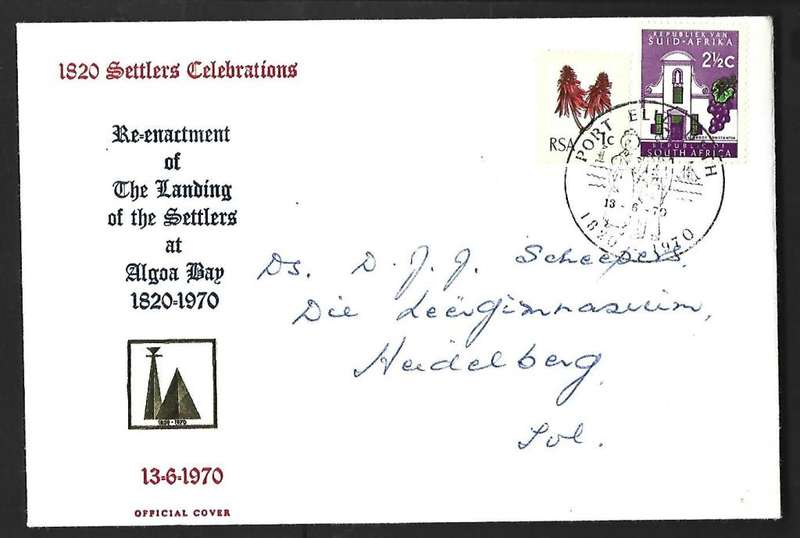 1820 Settlers Celebrations
Re-enactment
of
The Landing
of the Settlers
at
Algoa Bay
1820-1970
1820-1970
13-6-1970
OFFICIAL COVER
RSA 1c
REPUBLIEK VAN
SUID-AFRIKA
2½c
GROOT CONSTANTIA
REPUBLIC OF
SOUTH AFRICA
PORT ELIZABETH
13-6-70
1820 1970
Ds. D. J. J. Scheepers.
Die Leërgimnasium,
Heidelberg.
Tvl.